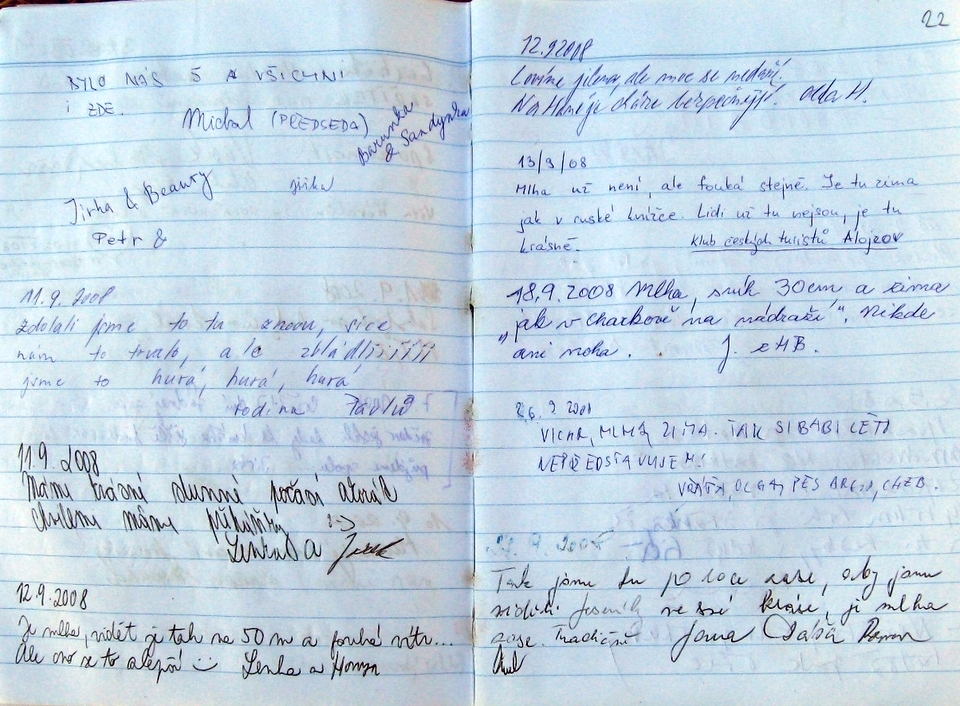 BYLO NÁS 5 A VŠICHNI
i ZDE.
Michal (PŘEDSEDA)
Barunka
& Sandynka
Jirka & Beauty
Jirka
Petr &
11.9. 2008
zdolali jsme to tu znovu, sice
nám to trvalo, ale zvládliiiiiii
jsme to hurá, hurá, hurá
rodina Pavlů
11.9. 2008
Máme krásné slunné počasí
chvílemi máme :-)
Lenka a
12.9.2008
Je mlha, vidět je tak na 50 m a fouká vítr...
Ale ono se to zlepší
Lenka a Honza
22
12.9.2008
ale moc se nedaří.
Na Hané je bezpečněji. Olda H.
13/9/08
Mlha už není, ale fouká stejně. Je tu zima
jak v ruské knížce. Lidi už tu nejsou, je tu
krásně. Klub českých turistů Alojzov
18.9.2008 Mlha, sníh 30cm a zima
"jak v Charkově na nádraží". Nikde
ani noha. J. z HB.
26. 9 2008
VICHR, MLHA, ZIMA. TAK SI BABÍ LÉTO
NEPŘEDSTAVUJEM!
OLGA, PES ARGO, CHEB.
Tak jsme tu po roce zase, aby jsme
viděli Jeseník ve své kráse, je mlha
zase. Tradičně Jana